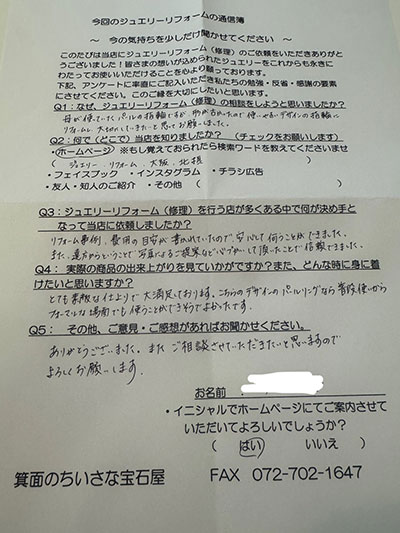 今回のジュエリーリフォームの通信簿
～ 今の気持ちを少しだけ聞かせてください ～
このたびは当店にジュエリーリフォーム（修理）のご依頼をいただきありが
とうございました！皆さまの想いが込められたジュエリーをこれからも永きに
わたってお使いいただけることを心より願っております。
下記、アンケートに率直にご記入いただき私たちの勉強・反省・感謝の要素
にさせてください。このご縁を大切にしたいと思います。
Q1：なぜ、ジュエリーリフォーム（修理）の相談をしようと思いましたか？
母が使っていたパールの指輪ですが、形が古かったので使いやすいデザインの指輪に
リフォームし、大切にしていきたいと思ってお願いしました。
Q2：何で（どこで）当店を知りましたか？ （チェックをお願いします）
・ホームページ ※もし覚えておられたら検索ワードを教えてくださいませ
（ ジュエリー、リフォーム、大阪、北摂 ）
・フェイスブック ・インスタグラム ・チラシ広告
・友人・知人のご紹介 ・その他（ ）
Q3：ジュエリーリフォーム（修理）を行う店が多くある中で何が決め手と
なって当店に依頼しましたか？
リフォーム事例、費用の目安が書かれていたので、安心して伺うことができました。
また、遠方からということで写真によるご提案など心づかいして頂いたことで信頼できました。
Q4： 実際の商品の出来上がりを見ていかがですか？また、どんな時に身に着
けたいと思いますか？
とても素敵な仕上りで大満足しております。こちらのデザインのパールリングなら普段使いから
フォーマルな場面でも使うことができそうでよかったです。
Q5： その他、ご意見・ご感想があればお聞かせください。
ありがとうございました。また ご相談させていただきたいと思いますので
よろしくお願いします。
お名前
・イニシャルでホームページにてご案内させて
いただいてよろしいでしょうか？
（ はい いいえ ）
箕面のちいさな宝石屋 FAX 072-702-1647